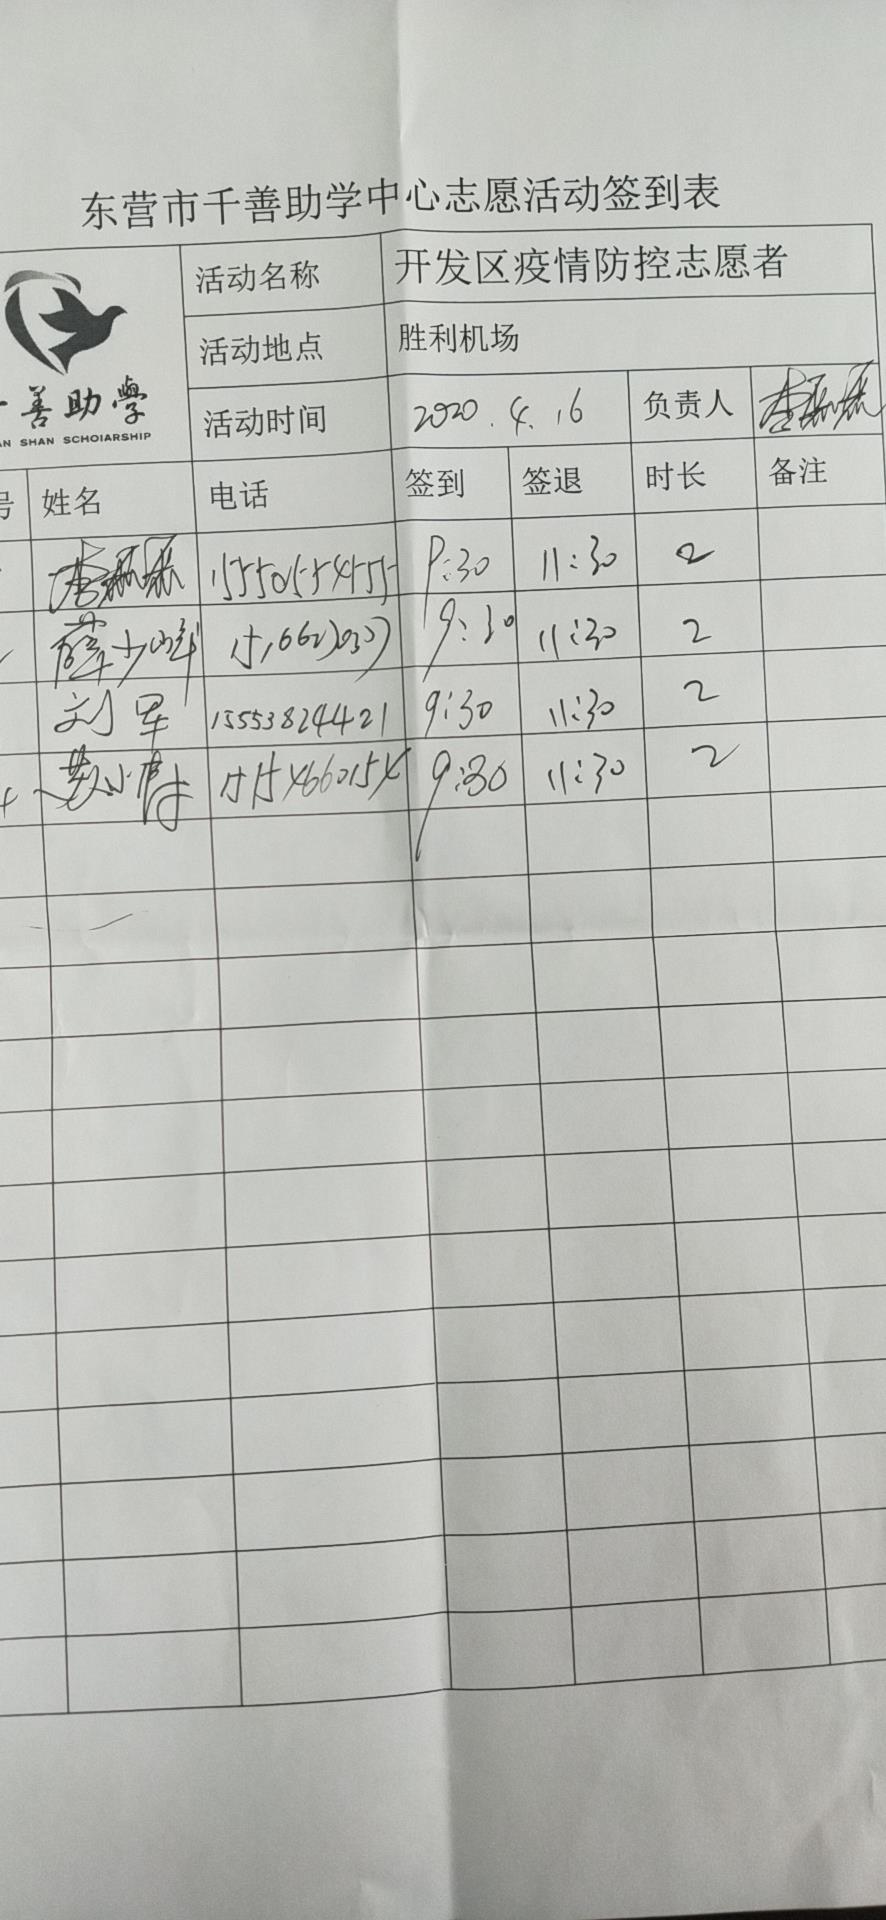 东营市千善助学中心志愿活动签到表
活动名称 开发区疫情防控志愿者
善助學
SHAN SCHOIARSHIP
活动地点 胜利机场
活动时间 2020.4.16 负责人
号 姓名 电话 签到 签退 时长 备注
15550154455 9:30 11:30 2
薛少峰 9:30 11:30 2
刘军 15553824421 9:30 11:30 2
15154660154 9:30 11:30 2